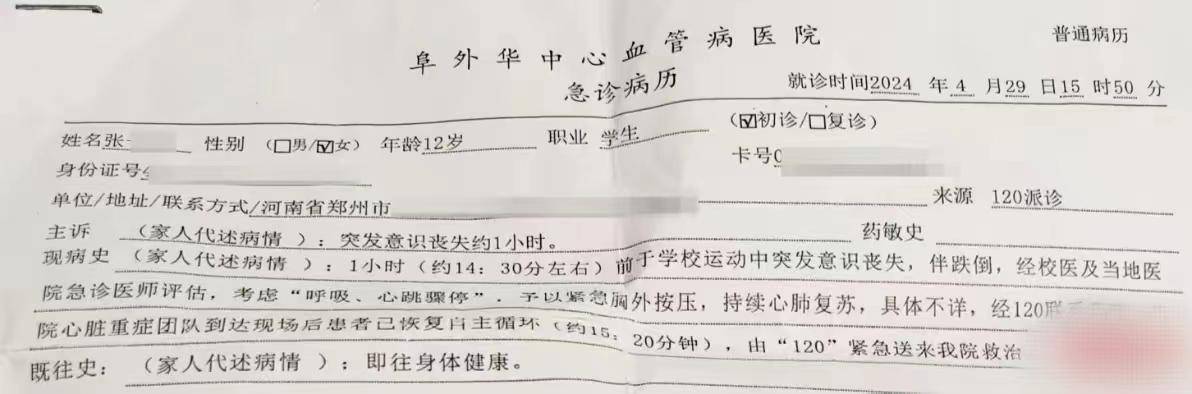 阜外华中心血管病医院
普通病历
急诊病历
就诊时间2024 年4 月29 日15 时50 分
姓名张 性别 （□男/☑女） 年龄12岁 职业 学生 （☑初诊/□复诊）
身份证号 卡号0
单位/地址/联系方式/河南省郑州市 来源 120派诊
主诉 （家人代述病情 ）：突发意识丧失约1小时。 药敏史
现病史 （家人代述病情 ）：1小时（约14：30分左右）前于学校运动中突发意识丧失，伴跌倒，经校医及当地医
院急诊医师评估，考虑“呼吸、心跳骤停”，予以紧急胸外按压，持续心肺复苏，具体不详，经120联
院心脏重症团队到达现场后患者已恢复自主循环（约15：20分钟），由“120”紧急送来我院救治
既往史： （家人代述病情 ）：即往身体健康。